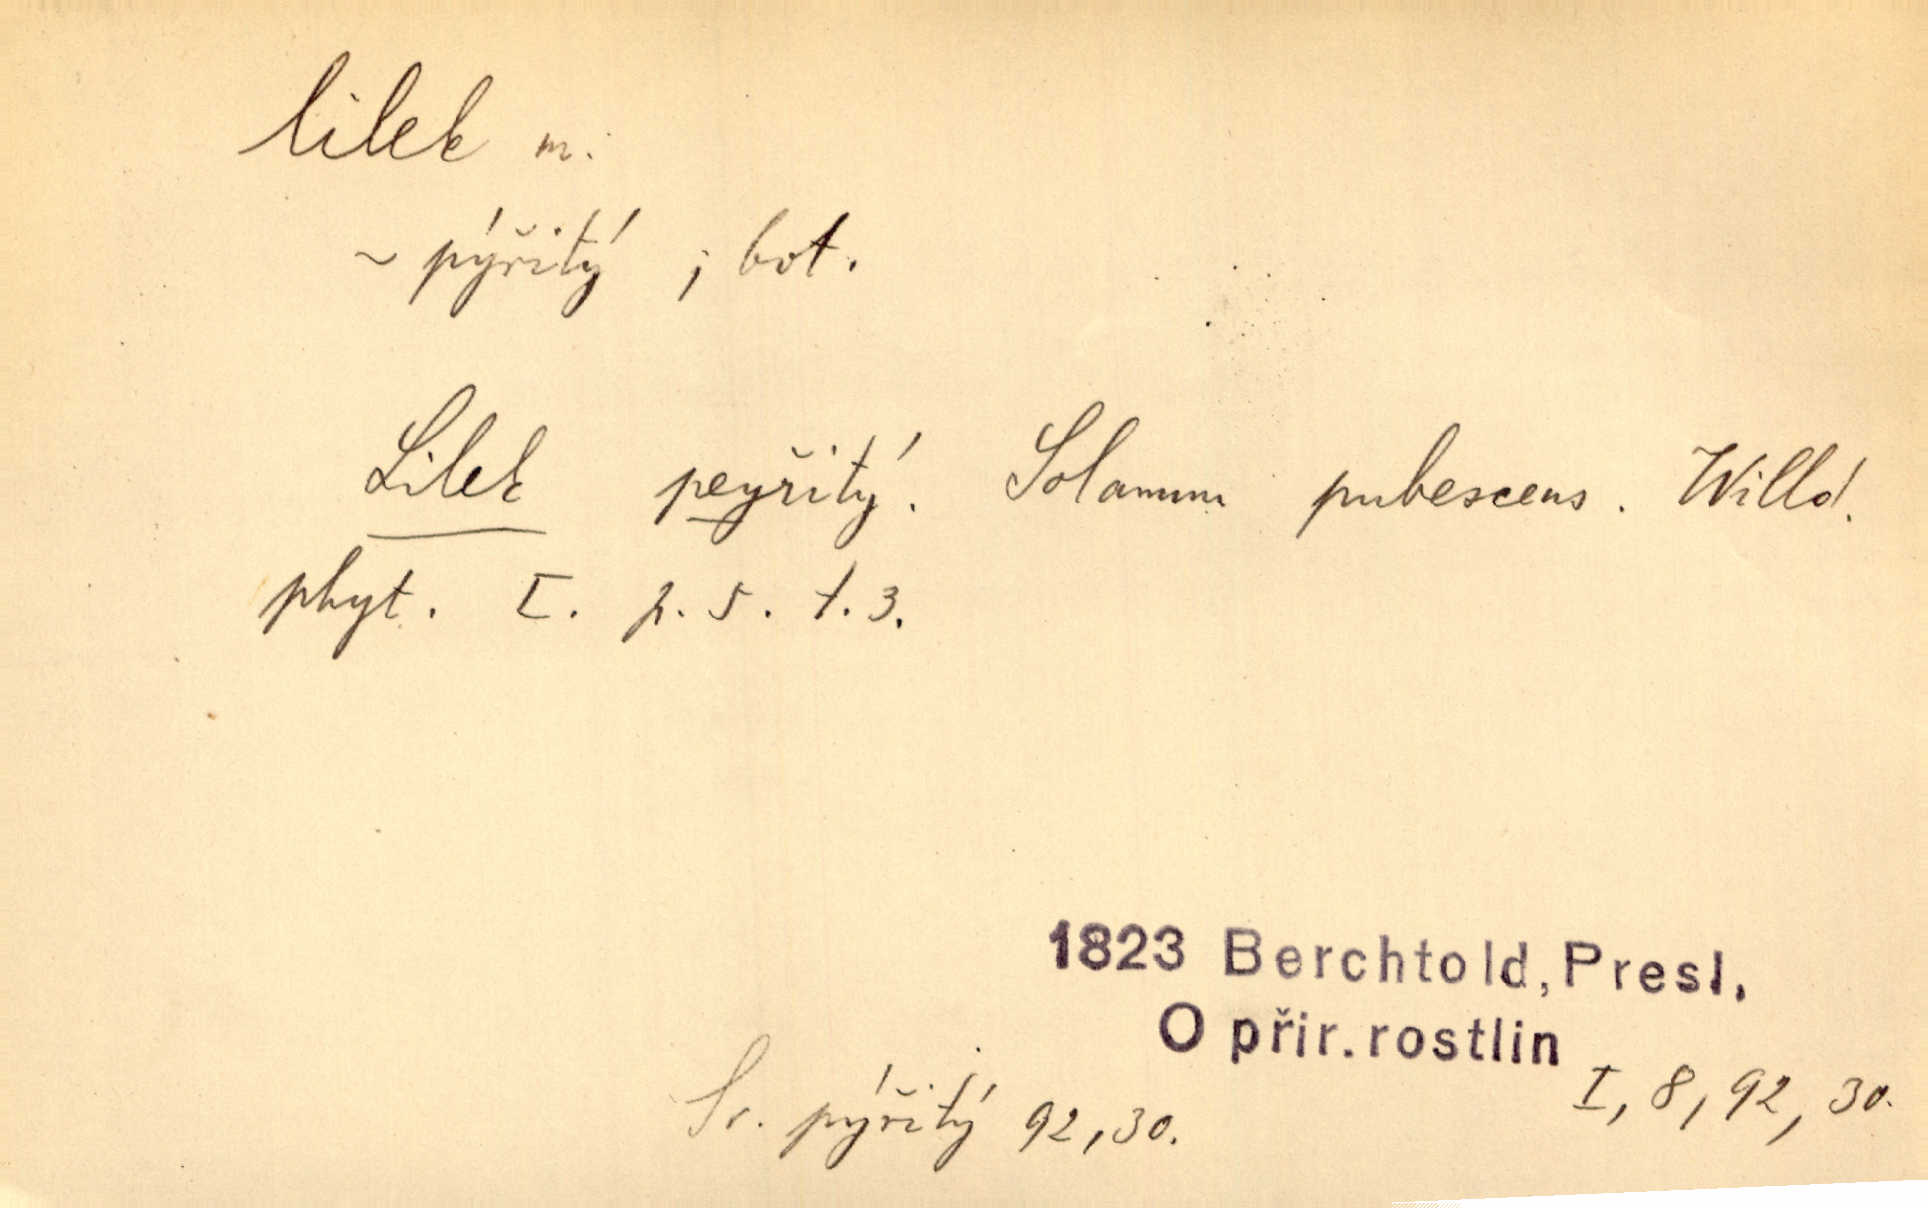 lilek m.
~ pýřitý ; bot.
Lilek peyřitý. Solanum pubescens. Willd.
phyt. I. p. 5. t. 3.
1823 Berchtold, Presl.
O přir. rostlin
I, 8, 92, 30.
Sr. pýřitý 92, 30.